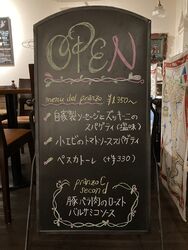 OPEN
menu del pranzo ¥1350〜
自家製ソーセージとズッキーニの
スパゲティ(塩味)
小エビのトマトソーススパゲティ
ペスカトーレ (+¥330)
pranzo C
second
豚バラ肉のロースト
バルサミコソース